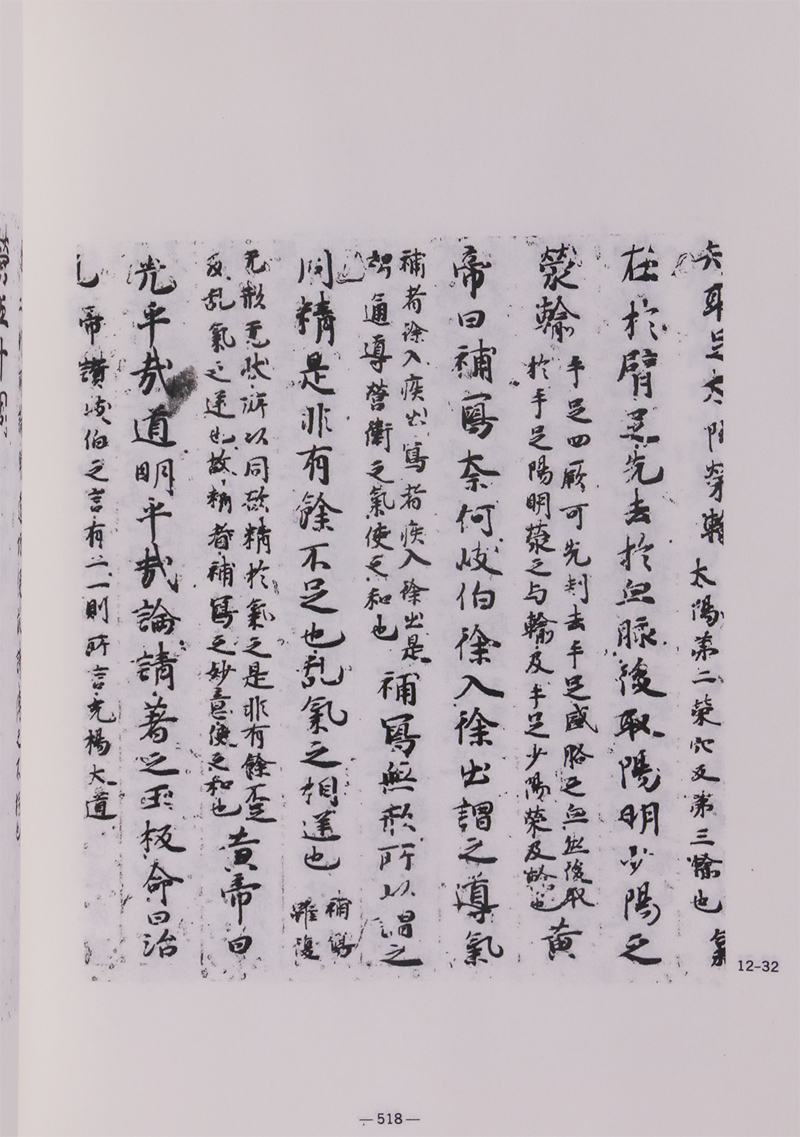 耳足太陽榮輸 太陽第二榮穴及第三輸也 氣
在於臂足先去於血脉後取陽明少陽之
滎輸
手足四厥可先刾去手足盛胳之血然後取
於手足陽明滎之与輸及手足少陽榮及輸也
黃
帝曰補寫奈何岐伯徐入徐出謂之導氣
補者徐入疾出寫者疾入徐出是
謂通導營衛之氣使之和也
補寫無形所以謂之
同精是非有餘不足也乱氣之相逆也
補寫
雖復
无形无状所以同欲精於氣之是非有餘不足
及乱氣之逆也故精者補寫之妙意使之和也
黃帝曰
光乎哉道明乎哉論請著之玉板命曰治
帝讚岐伯之言有二一則所言光揚大道
12-32
—518—